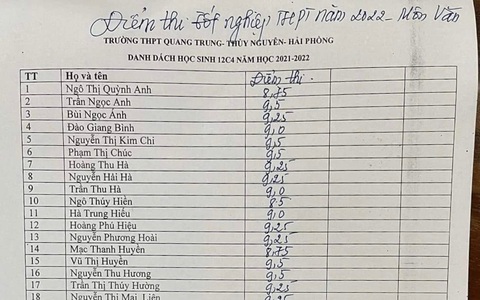 Điểm thi tốt nghiệp THPT năm 2022 - Môn Văn
TRƯỜNG THPT QUANG TRUNG- THỦY NGUYÊN- HẢI PHÒNG
DANH DÁCH HỌC SINH 12C4 NĂM HỌC 2021-2022
TT Họ và tên Điểm thi
1 Ngô Thị Quỳnh Anh 8,75
2 Trần Ngọc Anh 9,5
3 Bùi Ngọc Ánh 9,25
4 Đào Giang Bình 9,0
5 Nguyễn Thị Kim Chi 9,5
6 Phạm Thị Chúc 9,5
7 Hoàng Thu Hà 9,25
8 Nguyễn Hải Hà 9,25
9 Trần Thu Hà 9,0
10 Ngô Thúy Hiền 8,5
11 Hà Trung Hiếu 9,0
12 Hoàng Phú Hiệu 9,25
13 Nguyễn Phương Hoài 9,25
14 Mạc Thanh Huyền 8,75
15 Vũ Thị Huyền 9,5
16 Nguyễn Thu Hương 9,5
17 Trần Thị Thúy Hường 9,25
18 Nguyễn Thị Mai Liên 9,25